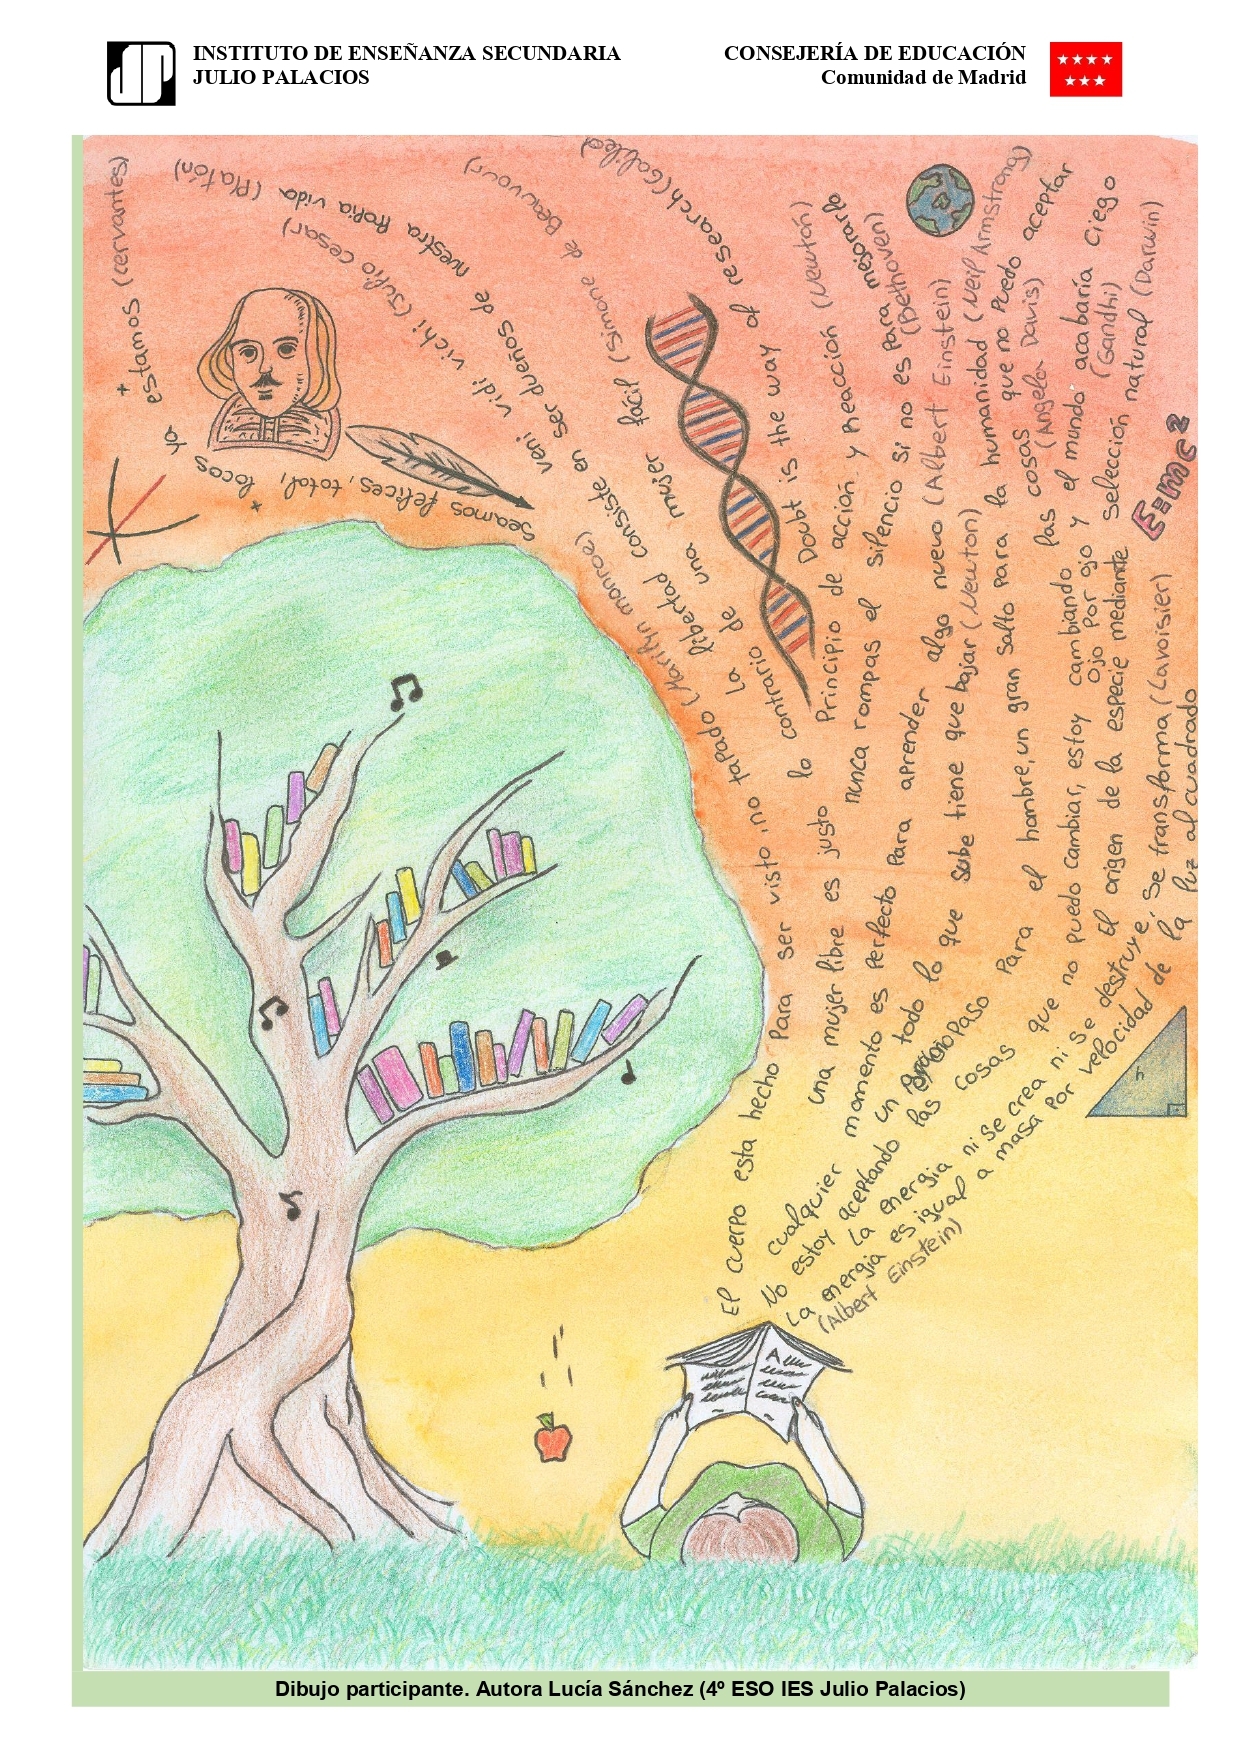 INSTITUTO DE ENSEÑANZA SECUNDARIA
JULIO PALACIOS
CONSEJERÍA DE EDUCACIÓN
Comunidad de Madrid
Seamos felices, total,
locos
ya
estamos (cervantes)
El cuerpo esta hecho para ser visto, no tapado (Marilyn monroe)
veni vidi vichi (Julio Cesar)
La libertad consiste en ser dueños de nuestra propia vida (Platón)
una mujer libre es justo lo contrario de una mujer fácil (Simone de Beauvour)
Doubt is the way of research (Galileo)
Principio de acción y reacción (Newton)
nunca rompas el silencio si no es para mejorarlo
(Bethoven)
cualquier momento es perfecto para aprender algo nuevo (Albert Einstein)
todo lo que sube tiene que bajar (Newton)
un paso para el hombre, un gran salto para la humanidad (Neil Armstrong)
No estoy aceptando las cosas que no puedo cambiar, estoy cambiando las cosas que no puedo aceptar
(Angela Davis)
Ojo por ojo y el mundo acabaría ciego
(Gandhi)
El origen de la especie mediante selección natural (Darwin)
La energia ni se crea ni se destruye, se transforma (Lavoisier)
La energia es igual a masa por velocidad de la luz al cuadrado
(Albert Einstein)
E=mc2
h
A
Dibujo participante. Autora Lucía Sánchez (4º ESO IES Julio Palacios)